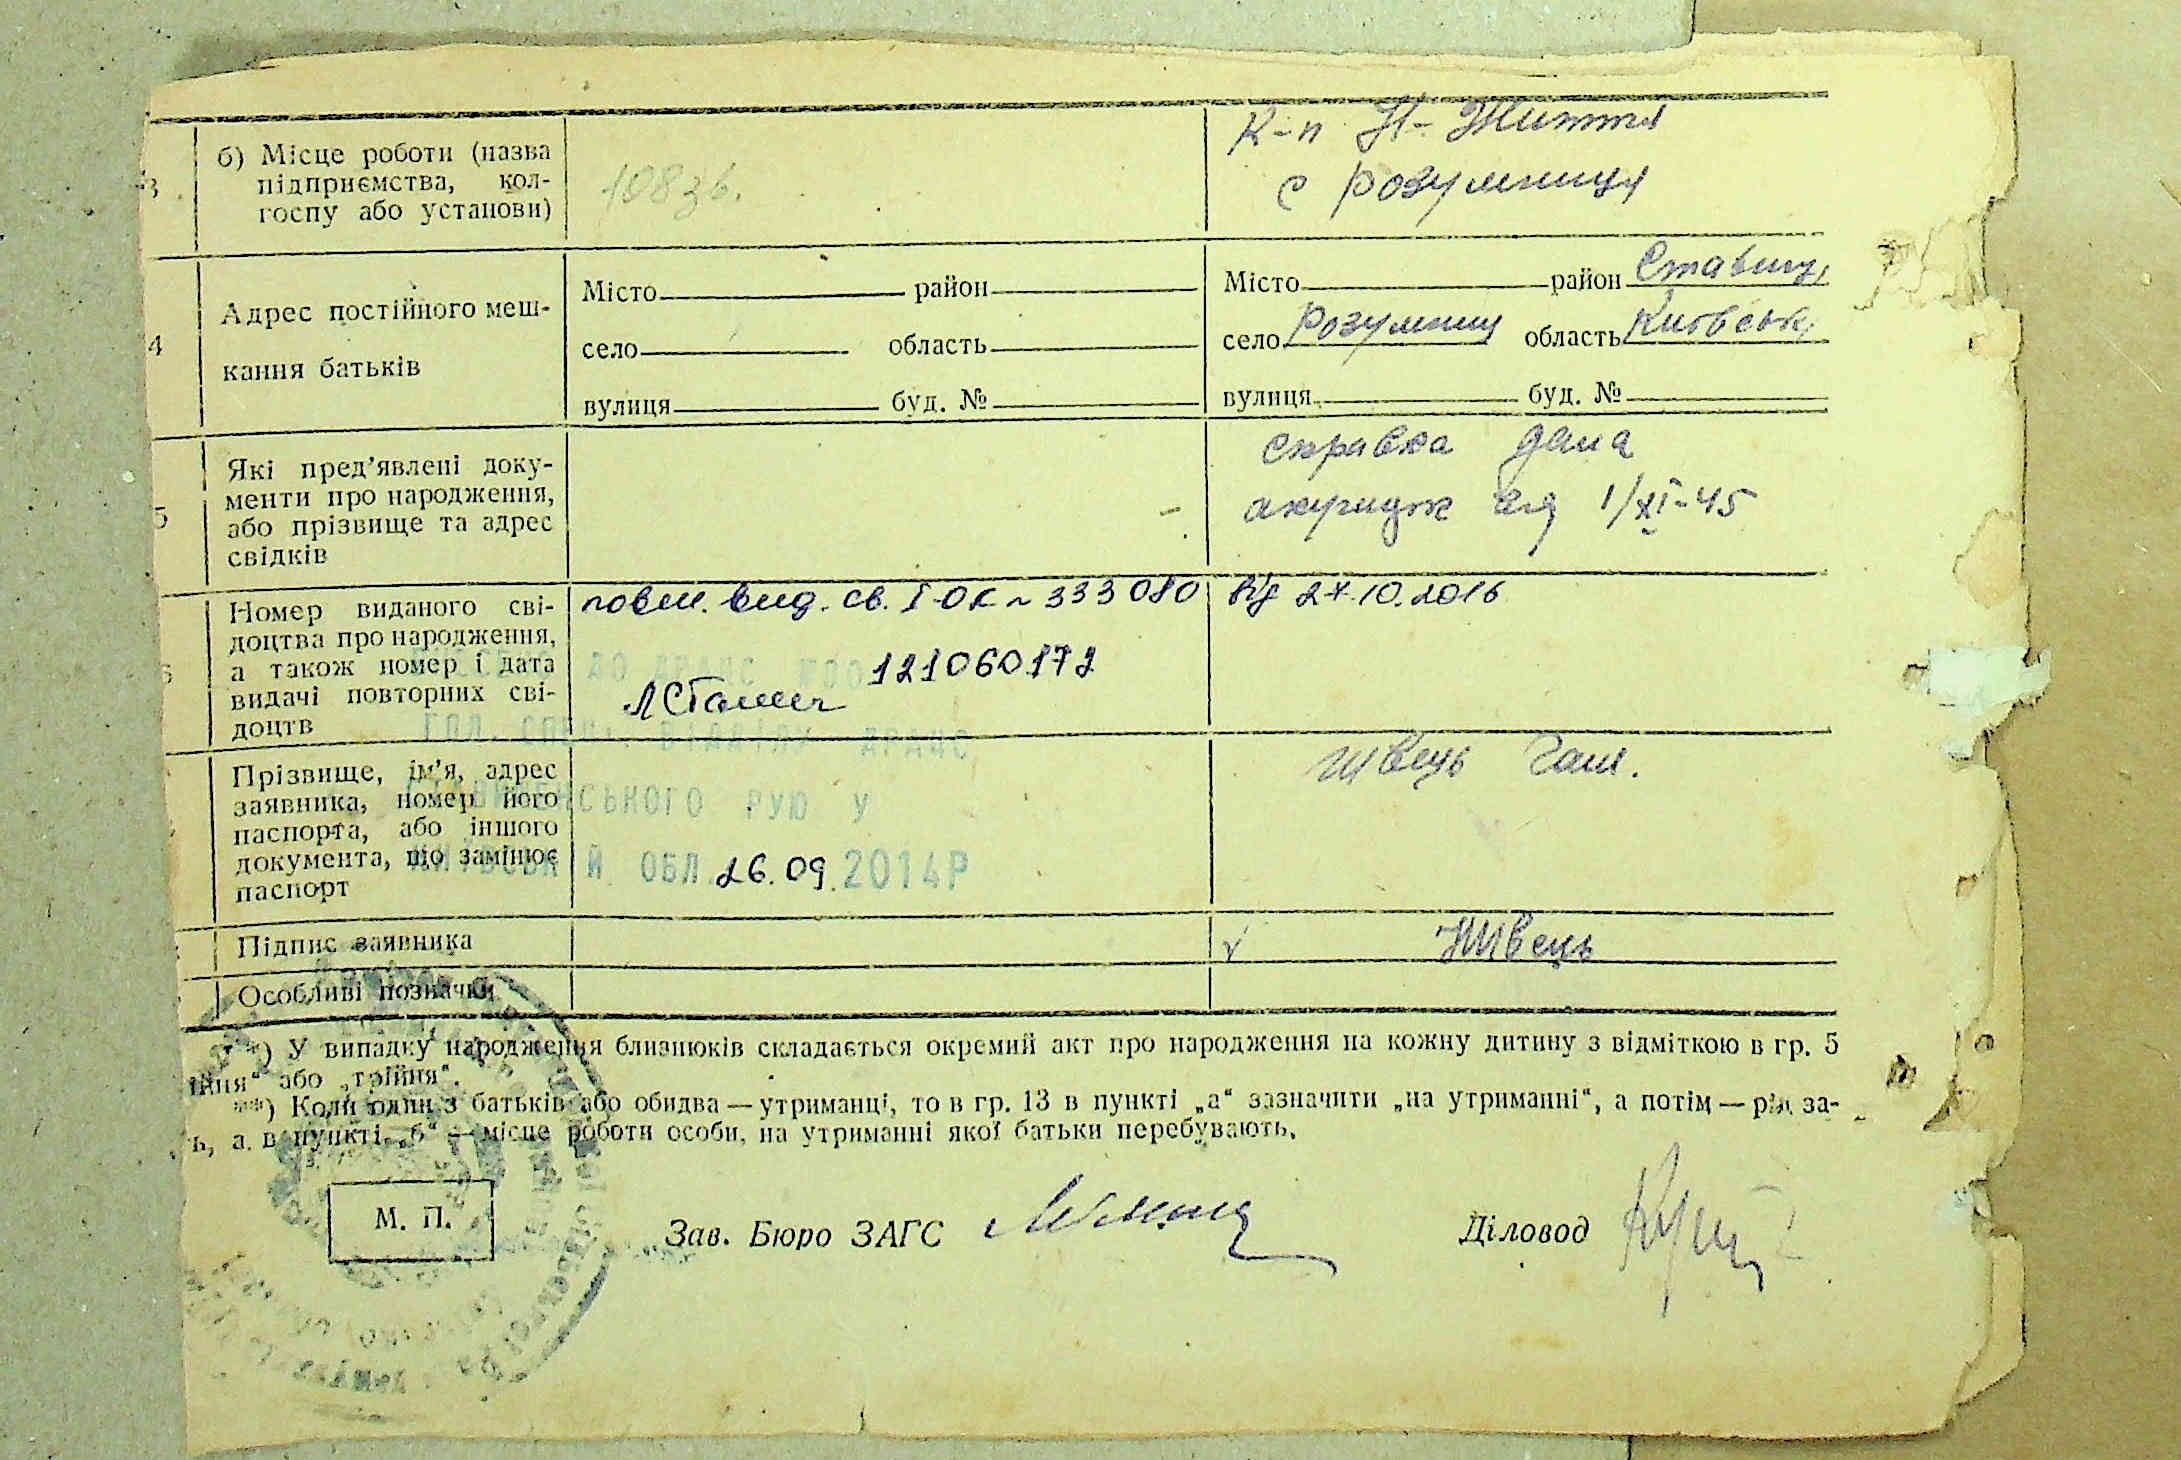 б) Місце роботи (назва
підприємства, кол-
госпу або установи)
108 зв.
К-п Н-Життя
с Розумниця
4
Адрес постійного меш-
кання батьків
Місто район
село область
вулиця буд. №
Місто район Ставищ,
село Розумниц область Київськ,
вулиця буд. №
5
Які пред’явлені доку-
менти про народження,
або прізвище та адрес
свідків
справка дана
акушерк від 1/XI-45
Номер виданого сві-
доцтва про народження,
а також номер і дата
видачі повторних сві-
доцтв
повт. вид. св. І-ОК № 333080 від 27.10.2016
121060172
ДО ДРАЦС
ГОЛ. СПЕЦ. ВІДДІЛУ ДРАЦС
СТАВИЩЕНСЬКОГО РУЮ У
КИЇВСЬКІЙ ОБЛ. 26.09.2014Р
Прізвище, ім’я, адрес
заявника, номер його
паспорта, або іншого
документа, що замінює
паспорт
Швець Гаш.
Підпис заявника
v Швець
Особливі позначки
*) У випадку народження близнюків складається окремий акт про народження на кожну дитину з відміткою в гр. 5
ійня“ або „трійня“.
**) Коли один з батьків або обидва — утриманці, то в гр. 13 в пункті „а“ зазначити „на утриманні“, а потім — рід за-
ь, а в пункті „б“ — місце роботи особи, на утриманні якої батьки перебувають.
М. П.
Зав. Бюро ЗАГС
Діловод